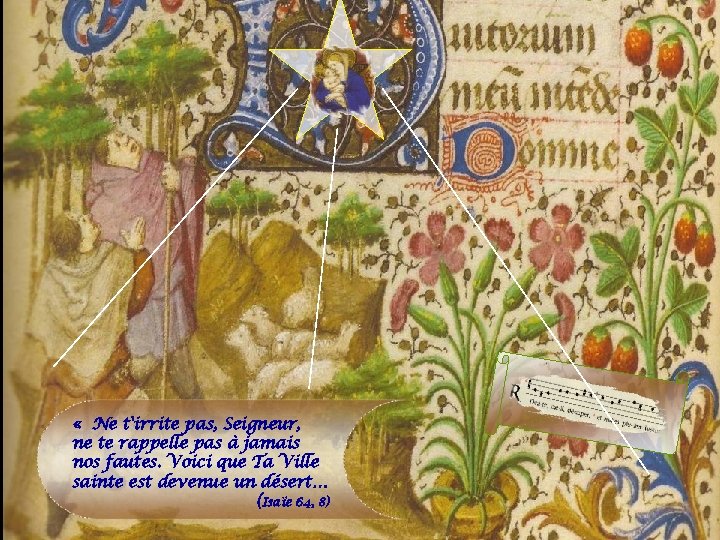 iutorium
meū intēde
Domine
« Ne t'irrite pas, Seigneur,
ne te rappelle pas à jamais
nos fautes. Voici que Ta Ville
sainte est devenue un désert…
(Isaïe 64, 8)
R
désuper, et nubes